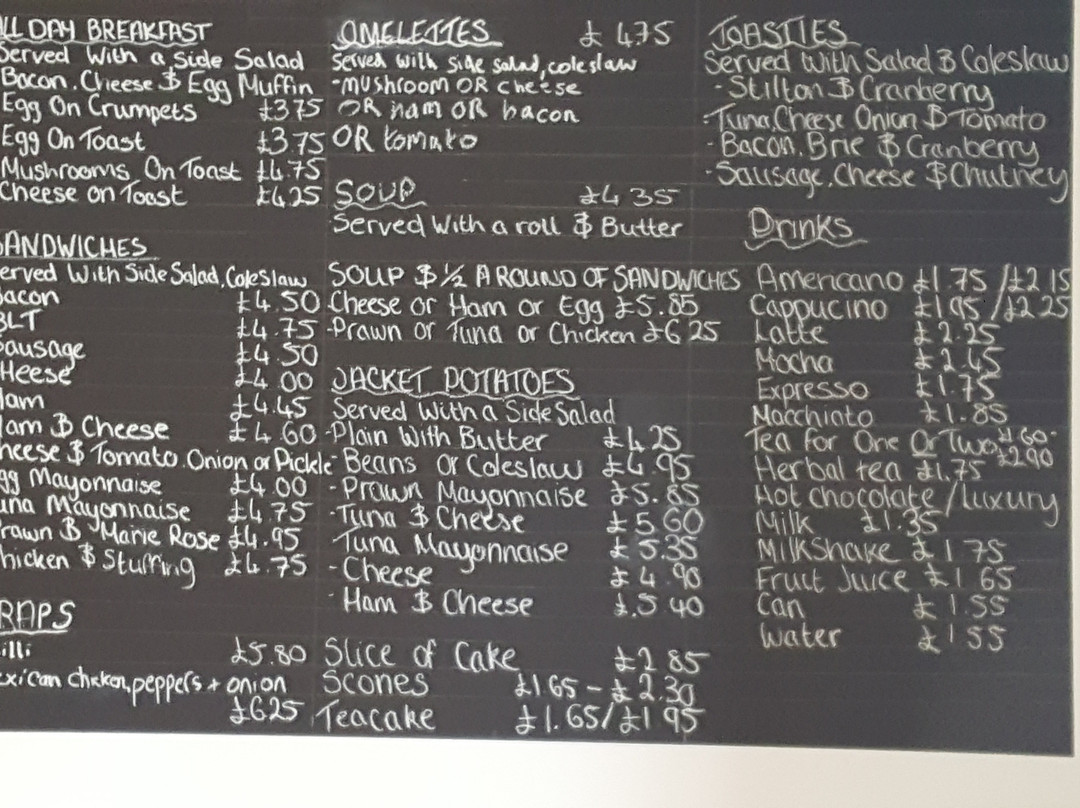 LL DAY BREAKFAST
Served With a Side Salad
Bacon, Cheese & Egg Muffin
Egg On Crumpets £3.75
Egg On Toast £3.75
Mushrooms On Toast £4.75
Cheese on Toast £4.25
ANDWICHES
erved With Side Salad, Coleslaw
acon £4.50
BLT £4.75
ausage £4.50
Heese £4.00
am £4.45
am & Cheese £4.60
heese & Tomato, Onion or Pickle
gg Mayonnaise £4.00
una Mayonnaise £4.75
rawn & Marie Rose £4.95
hicken & Stuffing £4.75
RAPS
illi £5.80
exican chicken, peppers + onion
£6.25
OMELETTES £4.75
Served with side salad, coleslaw
-mushroom OR cheese
OR ham OR bacon
OR tomato
SOUP £4.35
Served With a roll & Butter
SOUP & 1/2 A ROUND OF SANDWICHES
Cheese or Ham or Egg £5.85
-Prawn or Tuna or Chicken £6.25
JACKET POTATOES
Served With a Side Salad
-Plain With Butter £4.25
-Beans or Coleslaw £4.95
-Prawn Mayonnaise £5.85
-Tuna & Cheese £5.60
Tuna Mayonnaise £5.35
-Cheese £4.90
-Ham & Cheese £5.40
Slice of Cake £2.85
Scones £1.65 - £2.30
Teacake £1.65/£1.95
TOASTIES
Served With Salad & Coleslaw
-Stilton & Cranberry
-Tuna, Cheese Onion & Tomato
-Bacon, Brie & Cranberry
-Sausage, Cheese & Chutney
Drinks
Americano £1.75 /£2.15
Cappucino £1.95 /£2.25
Latte £2.25
Mocha £2.45
Expresso £1.75
Macchiato £1.85
Tea for One Or Two £1.60-
£2.90
Herbal tea £1.75
Hot chocolate /luxury
Milk £1.35
MilkShake £1.75
Fruit Juice £1.65
Can £1.55
Water £1.55